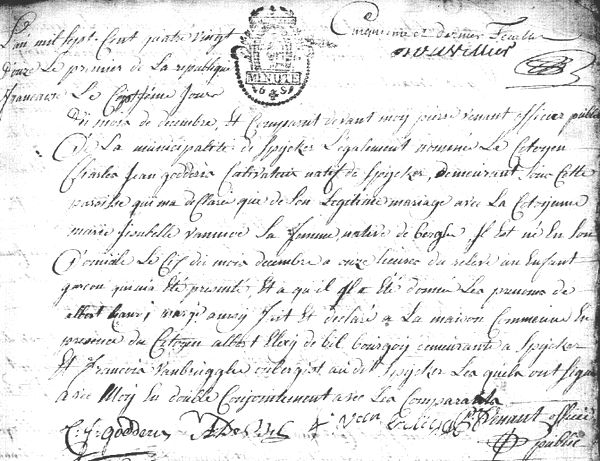 L'an mil Sept Cent quatre vingt
Cinquieme et dernier feuille
douze Le premier de La republique
francaise Le Septième Jour
MINUTE
du mois de decembre, Est Comparut devant moy pierre venant officier public
De La municipalité de Spycker Legalement nommé Le Citoyen
Charles Jean godderis Cultivateur natif de Spycker, demeurant Sous Cette
paroisse qui m'a declaré que de Son Legitime mariage avec La Citoyenne
marie isabelle Sa femme native de bergue Il est né En Son
Domicile Le Six du mois decembre a onze heures du Relevé un Enfant
garcon qui m'a été presenté Et a qui il a été donné Les prenoms de
albert henri fait et declaré a La maison Commune En
presence du Citoyen albert Eloy de bil bourgois demeurant a Spycker
Et Francois Vanbrugghe aubergist audit Spycker Les quels ont Signé
avec Moy En double Conjointement avec Les Comparants
C. J. godderis officier
public